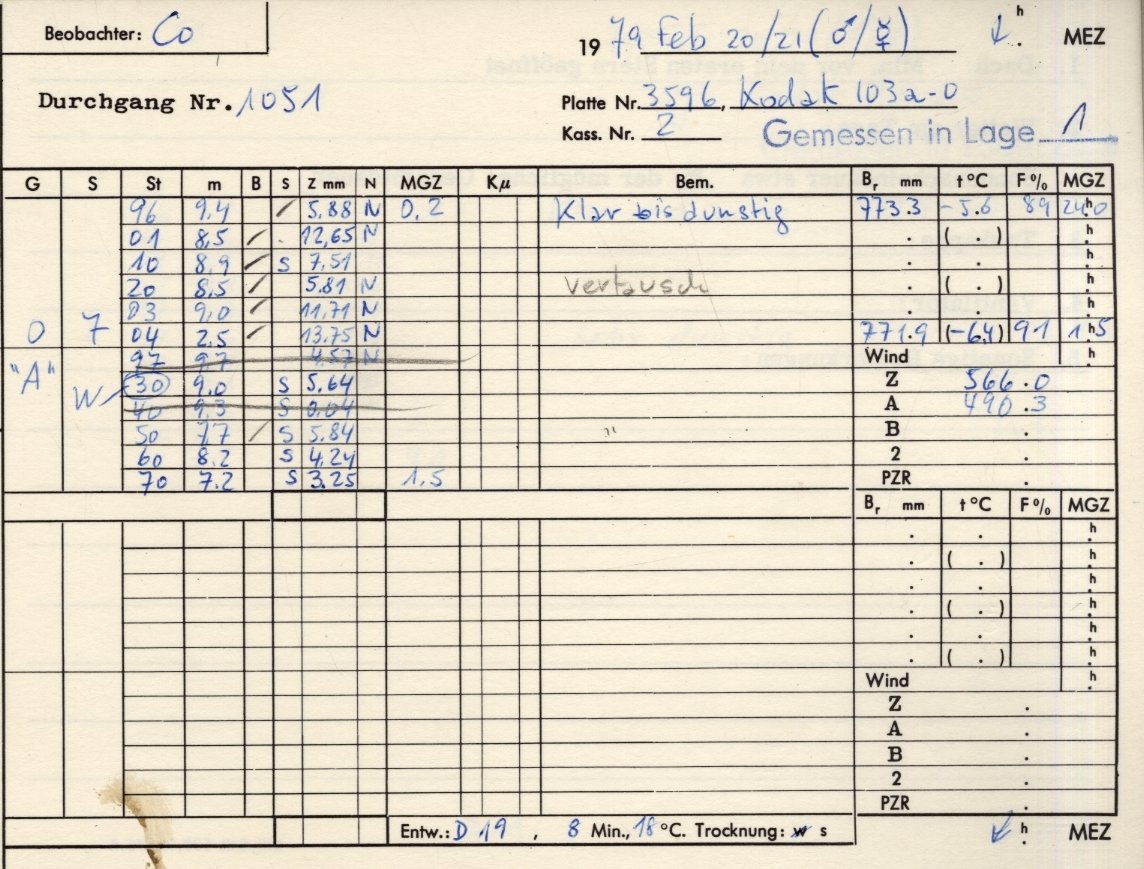 Beobachter: Co
19 79 Feb 20/21 (♂/☿) h . MEZ
Durchgang Nr. 1051
Platte Nr. 3596, Kodak 103a-O
Kass. Nr. 2 Gemessen in Lage 1
G S St m B s Z mm N MGZ Kμ Bem. Br mm t °C F% MGZ
96 9.4 / 5.88 N 0,2 Klar bis dunstig 773.3 -5.6 89 24h0
01 8,5 / . 12,65 N . ( . ) h
10 8,9 / S 7,51 . . h
20 8,5 / 5.81 N vertausch . ( . ) h
03 9,0 / 11,71 N . . h
0 7 04 2,5 / 13.75 N 771.9 (-6.4) 91 1h5
97 9.7 4.57 N Wind h
"A" W 30 9,0 S 5,64 Z 566.0
40 9.3 S 0,04 A 490.3
50 7.7 / S 5,84 " B .
60 8.2 S 4,24 2 .
70 7.2 S 3.25 1,5 PZR .
Br mm t °C F% MGZ
. . h
. ( . ) h
. . h
. ( . ) h
. . h
. ( . ) h
Wind h
Z .
A .
B .
2 .
PZR .
Entw.: D 19 , 8 Min., 18 °C. Trocknung: w s h . MEZ